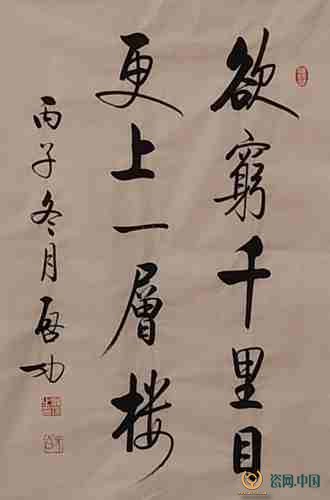 欲窮千里目
更上一層楼
丙子冬月啓功
瓷网.中国